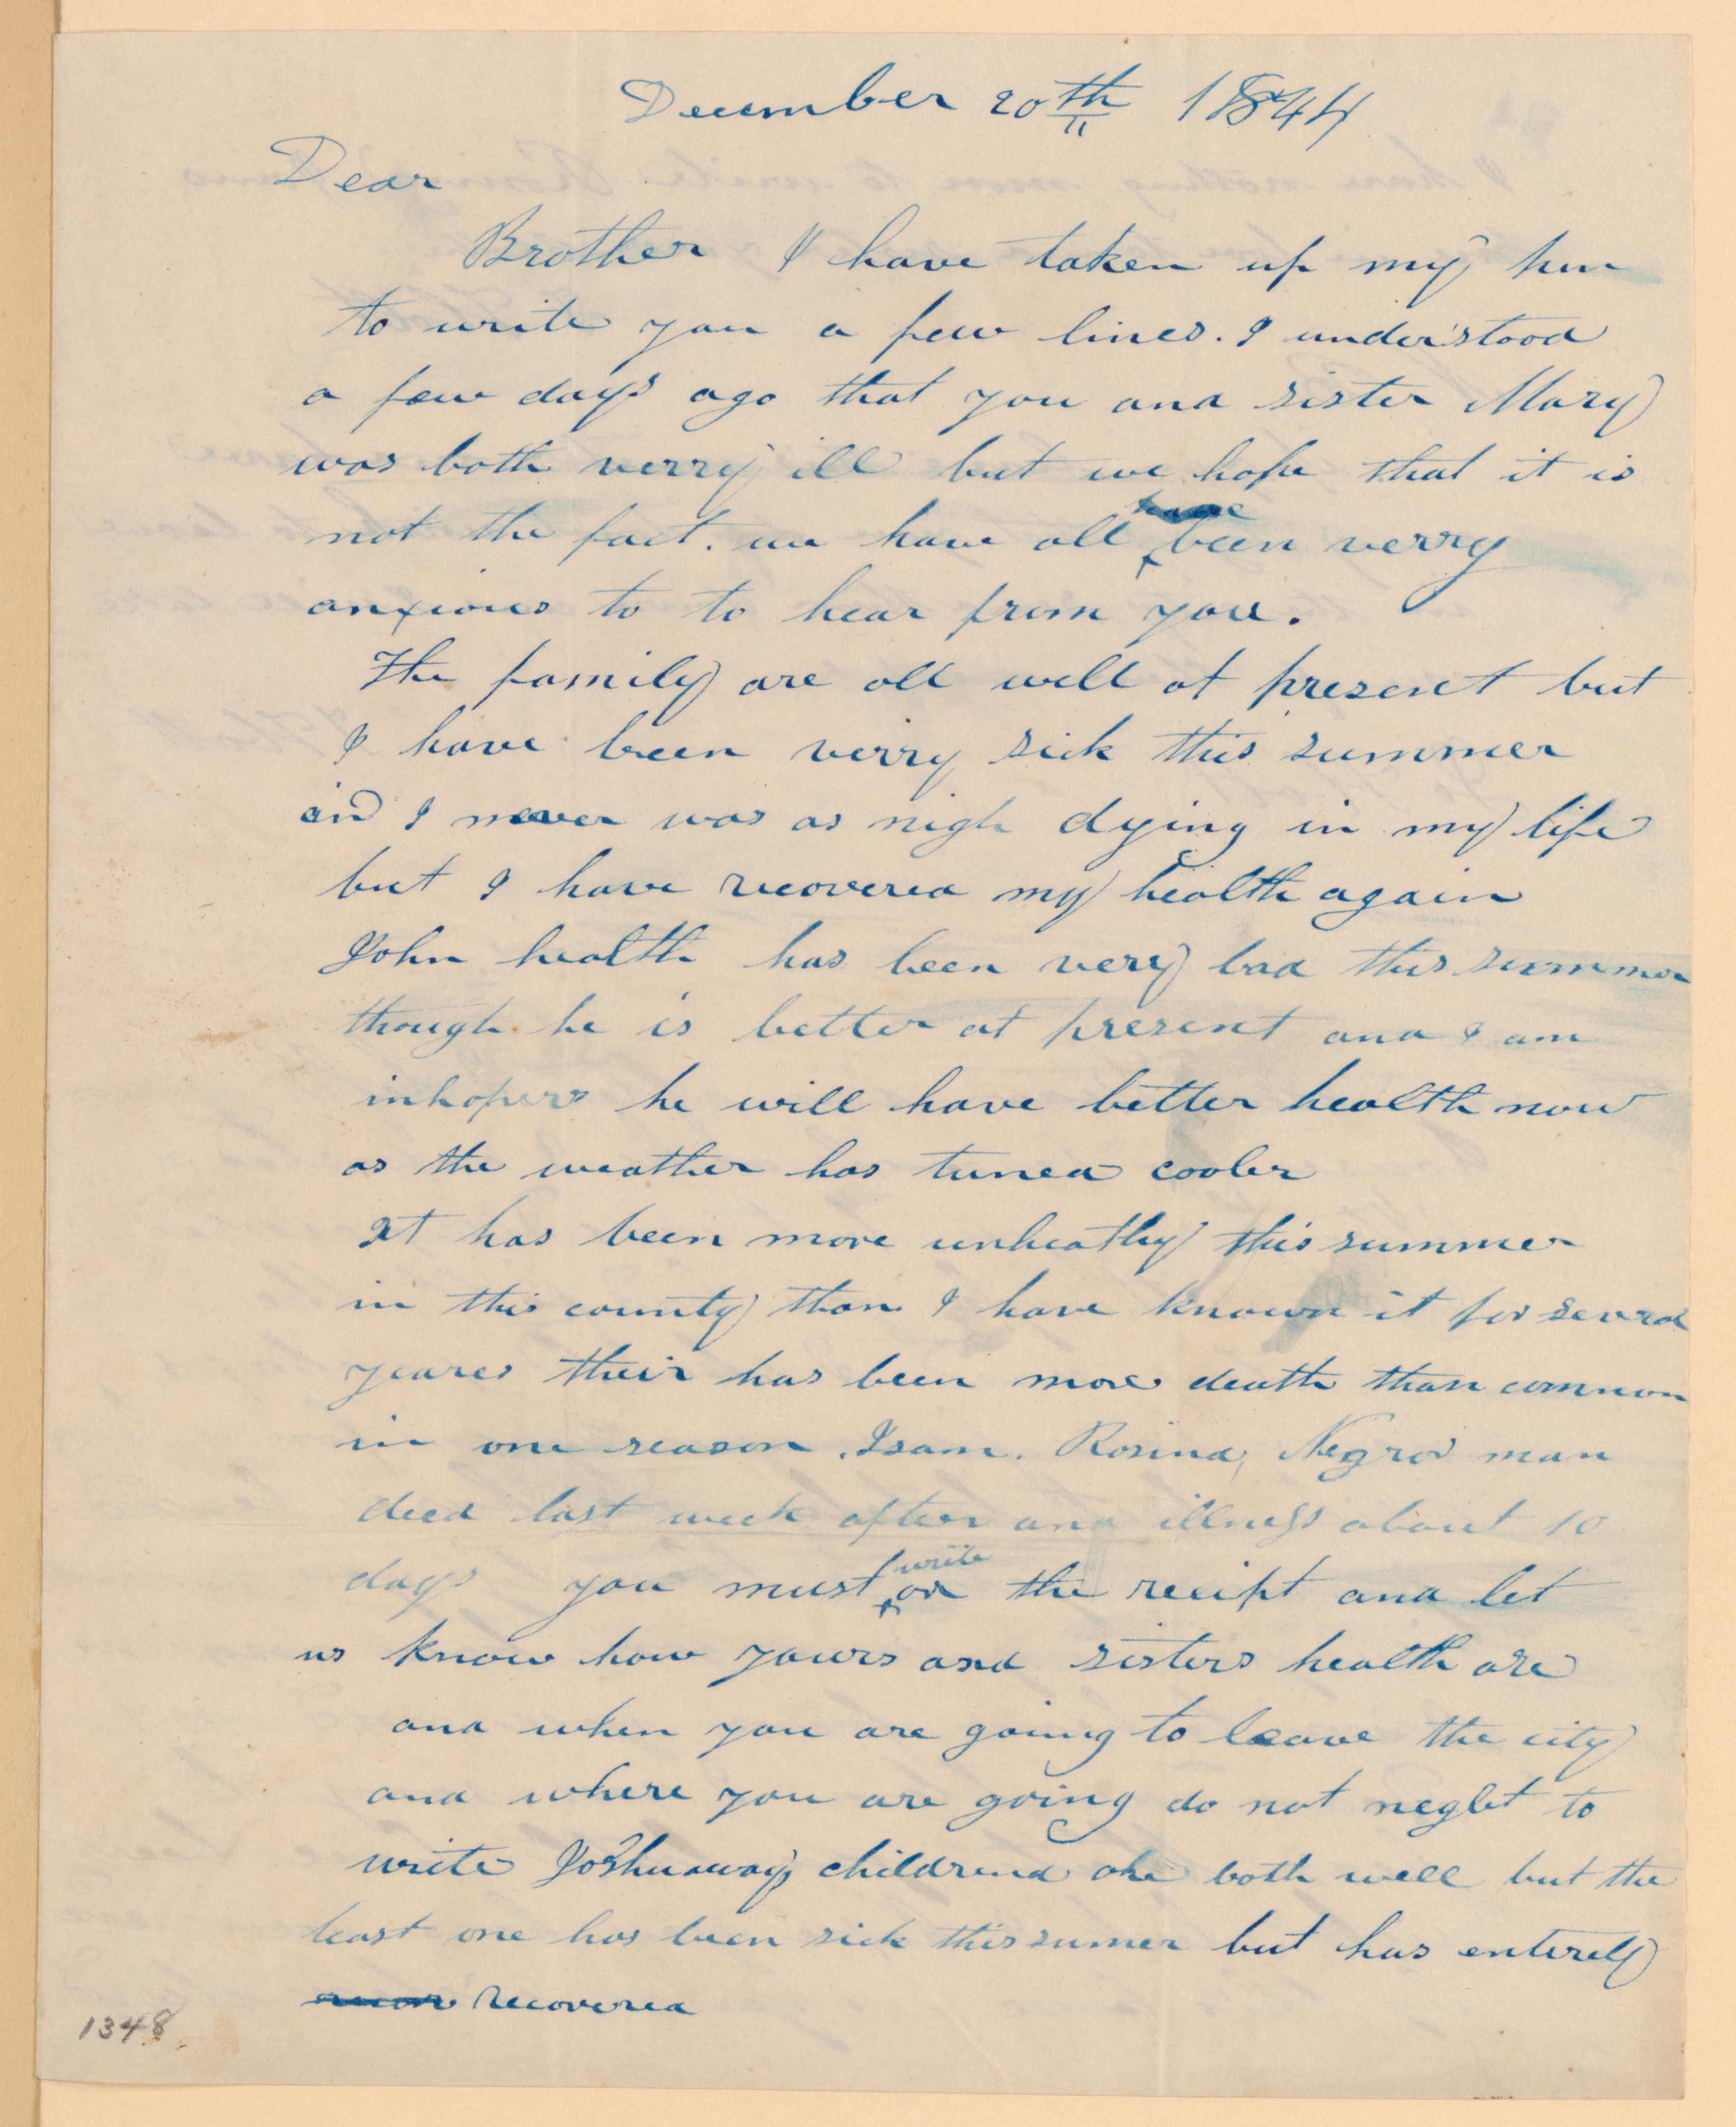 December 20th 1844
Dear
Brother I have taken up my pen
to write you a few lines. I understood
a few days ago that you and sister Mary
was both verry ill but we hope that it is
not the fact. we have all been verry
anxious to to hear from you.
The family are all well at present but
I have been verry sick this summer
and I never was as nigh dying in my life
but I have recovered my health again
John health has been very bad this summer
though he is better at present and I am
inhopers he will have better health now
as the weather has tuned cooler
It has been more unheathy this summer
in this county than I have known it for several
yeares their has been more death than common
in one season. Isam. Rosina, Negro man
died last week after and illness about 10
days you must write on the recipt and let
us know how yours and sisters health are
and when you are going to leave the city
and where you are going do not neglet to
write Joshuaways childrend are both well but the
least one has been sick this sumer but has entirely
recovered
1348